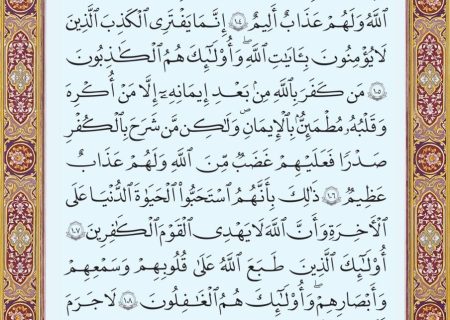 اللَّهُ وَلَهُمْ عَذَابٌ أَلِيمٌ ١٠٤ إِنَّمَا يَفْتَرِى ٱلْكَذِبَ ٱلَّذِينَ
لَا يُؤْمِنُونَ بِـَٔايَـٰتِ ٱللَّهِ ۖ وَأُو۟لَـٰٓئِكَ هُمُ ٱلْكَـٰذِبُونَ
١٠٥ مَن كَفَرَ بِٱللَّهِ مِنۢ بَعْدِ إِيمَـٰنِهِۦٓ إِلَّا مَنْ أُكْرِهَ
وَقَلْبُهُۥ مُطْمَئِنٌّۢ بِٱلْإِيمَـٰنِ وَلَـٰكِن مَّن شَرَحَ بِٱلْكُفْرِ
صَدْرًا فَعَلَيْهِمْ غَضَبٌ مِّنَ ٱللَّهِ وَلَهُمْ عَذَابٌ
عَظِيمٌ ١٠٦ ذَٰلِكَ بِأَنَّهُمُ ٱسْتَحَبُّوا۟ ٱلْحَيَوٰةَ ٱلدُّنْيَا عَلَى
ٱلْـَٔاخِرَةِ وَأَنَّ ٱللَّهَ لَا يَهْدِى ٱلْقَوْمَ ٱلْكَـٰفِرِينَ ١٠٧
أُو۟لَـٰٓئِكَ ٱلَّذِينَ طَبَعَ ٱللَّهُ عَلَىٰ قُلُوبِهِمْ وَسَمْعِهِمْ
وَأَبْصَـٰرِهِمْ ۖ وَأُو۟لَـٰٓئِكَ هُمُ ٱلْغَـٰفِلُونَ ١٠٨ لَا جَرَمَ